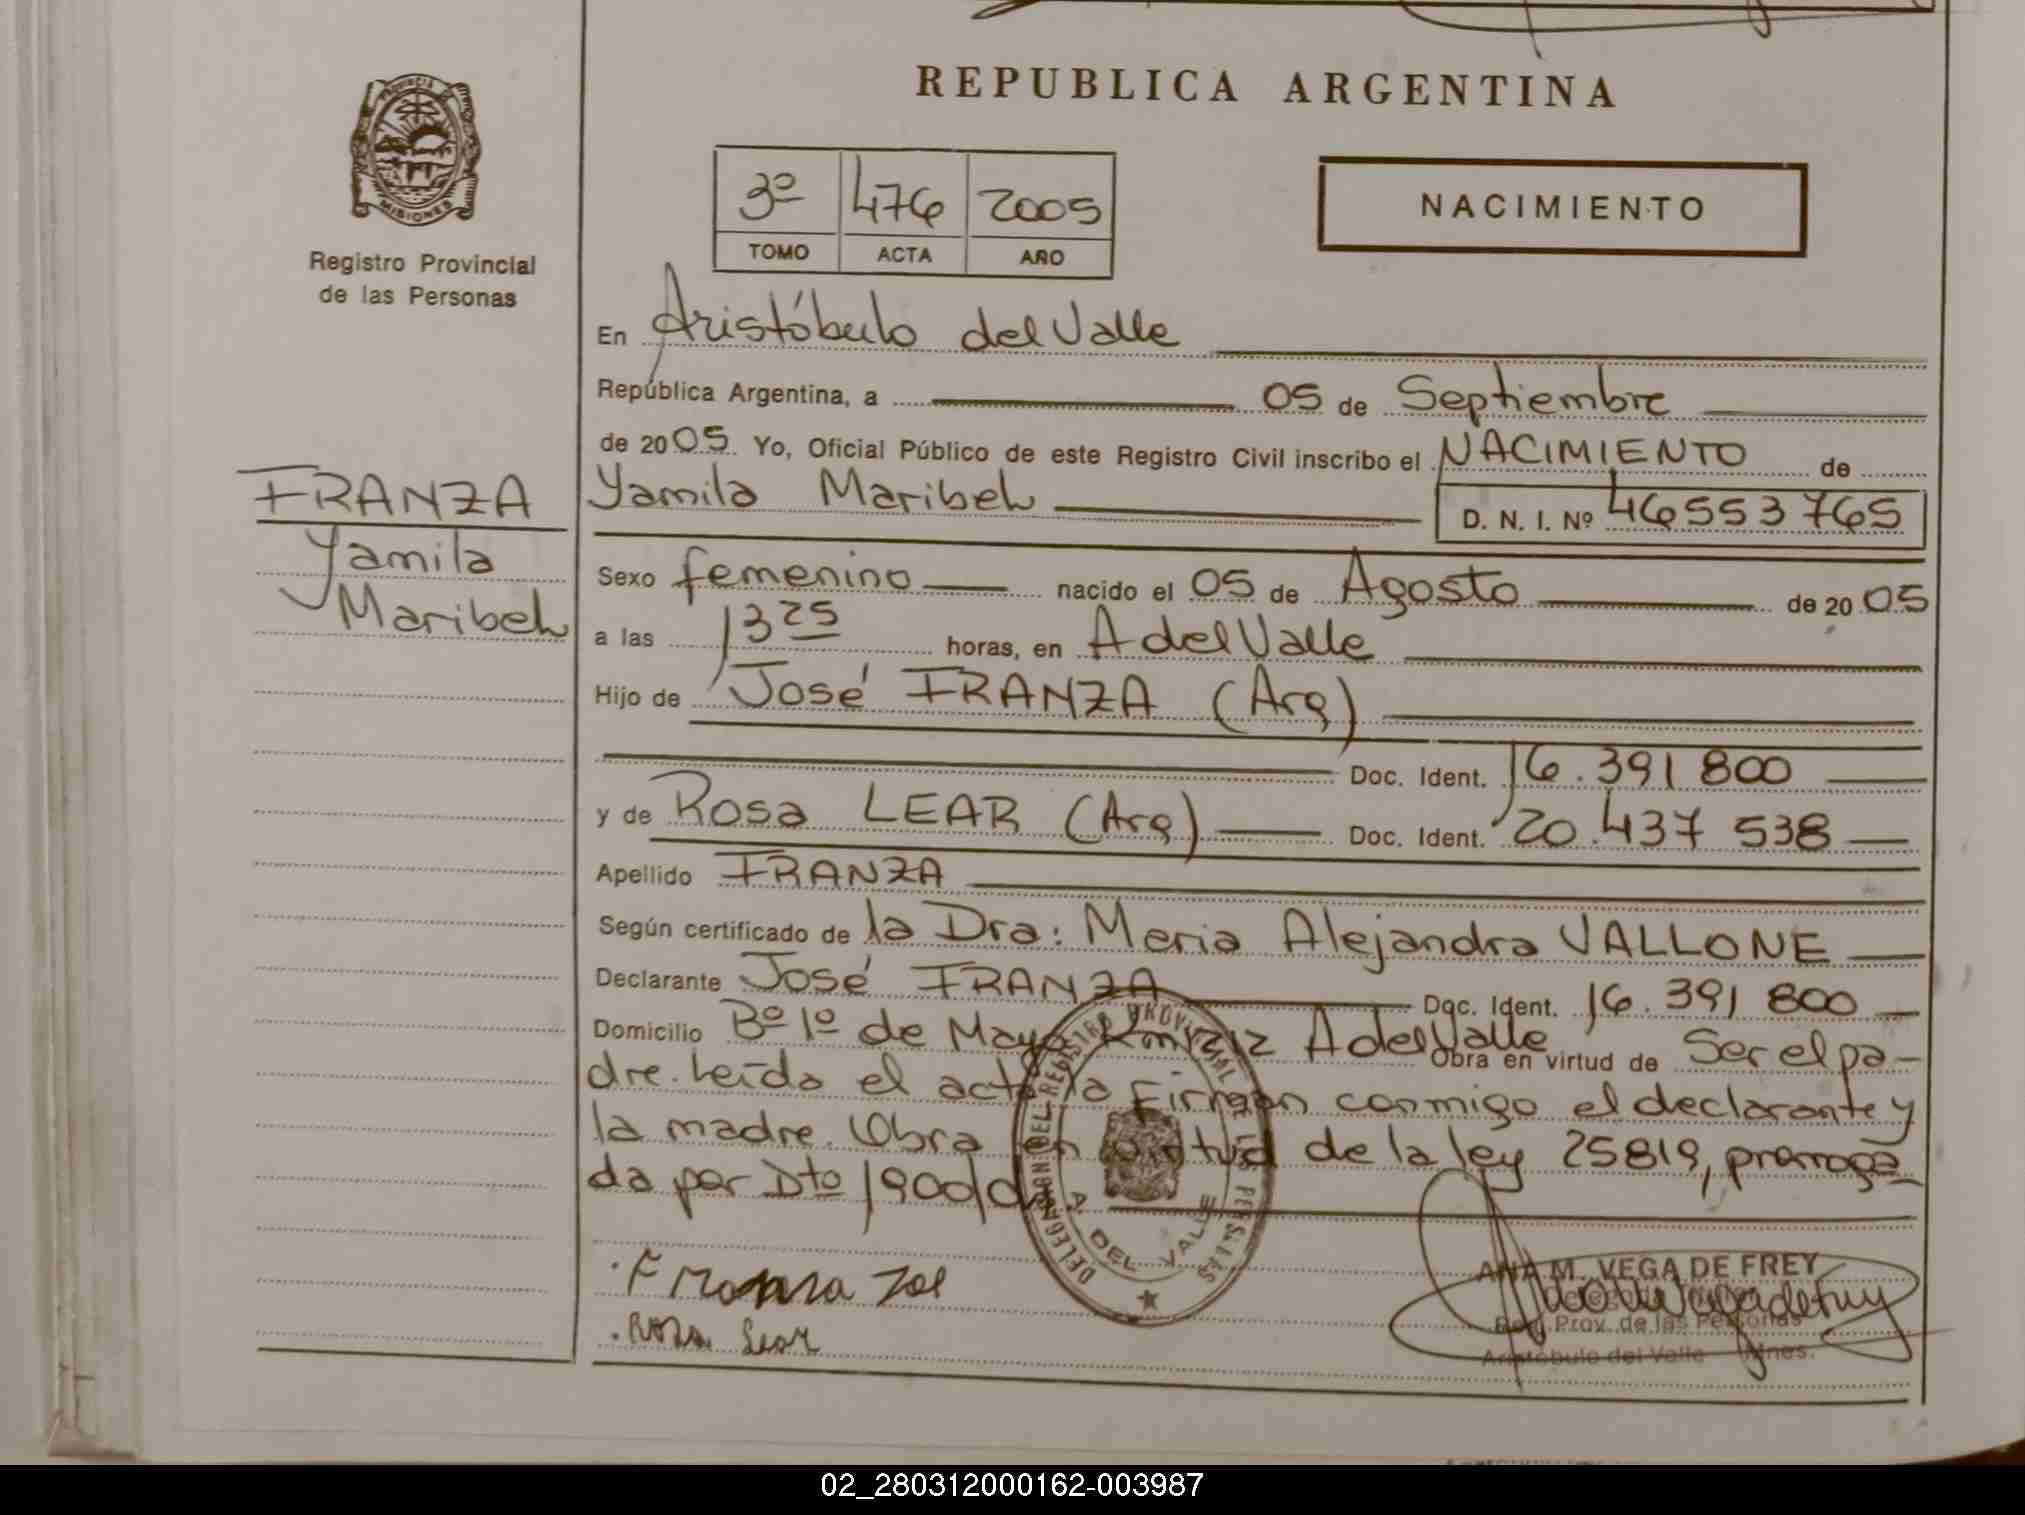 REPUBLICA ARGENTINA
PROVINCIA DE
MISIONES
Registro Provincial
de las Personas
3º 476 2005
TOMO ACTA AÑO
NACIMIENTO
En Aristóbulo del Valle
República Argentina, a 05 de Septiembre
de 2005. Yo, Oficial Público de este Registro Civil inscribo el NACIMIENTO de
FRANZA
Yamila
Maribel
Yamila Maribel D. N. I. Nº 46553765
Sexo femenino nacido el 05 de Agosto de 2005
a las 13 25 horas, en A del Valle
Hijo de José FRANZA (Arg)
Doc. Ident. 16.391 800
y de Rosa LEAR (Arg) Doc. Ident. 20.437 538
Apellido FRANZA
Según certificado de la Dra: Maria Alejandra VALLONE
Declarante José FRANZA Doc. Ident. 16.391 800
Domicilio Bº 1º de Mayo Km 1212 A del Valle Obra en virtud de Ser el pa-
dre. Leída el acta la Firman conmigo el declarante y
la madre. Obra en virtud de la ley 25819, prorroga
da por Dto 1900/
DELEGACION DEL REGISTRO PROVINCIAL DE LAS PERSONAS
A. DEL VALLE
Franza Jose
Rosa Lear
ANA M. VEGA DE FREY
Reg. Prov. de las Personas
Aristóbulo del Valle Mnes.
02_280312000162-003987